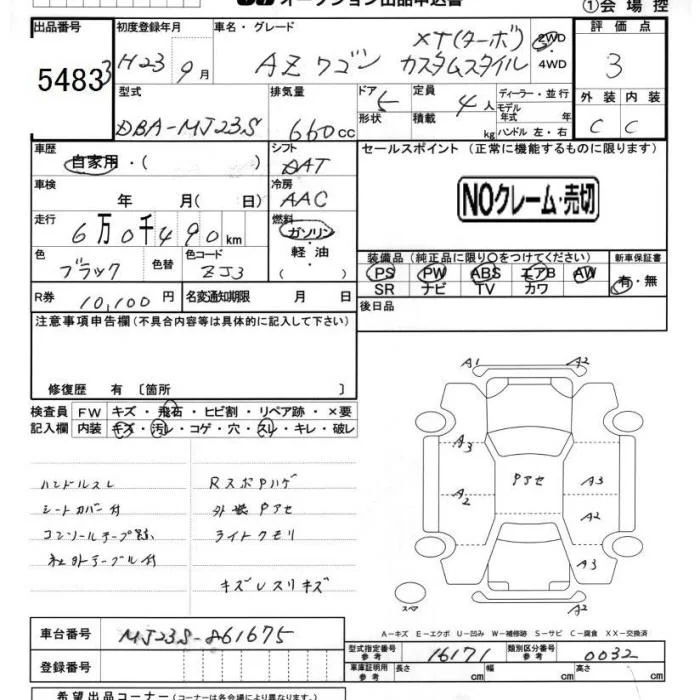 オークション出品申込書
①会場控
出品番号
5483
3
初度登録年月
H23 9月
車名・グレード
AZワゴン
XT(ターボ)
カスタムスタイル
2WD
4WD
評価点
3
外装 内装
C C
型式
DBA-MJ23S
排気量
660cc
ドア
5
形状
定員
4人
積載
kg
ディーラー・並行
モデル年式 年
ハンドル 左・右
車歴
自家用・( )
シフト
DAT
セールスポイント (正常に機能するものに限ります)
NOクレーム・売切
車検
年 月( 日)
冷房
AAC
走行
6万0千490km
燃料
ガソリン
軽油
( )
色
ブラック
色替
色コード
ZJ3
装備品 (純正品に限り○をつけてください)
PS PW ABS エアB AW
SR ナビ TV カワ
新車保証書
有・無
R券
10,100円
名変通知期限 月 日
後日品
注意事項申告欄 (不具合内容等は具体的に記入して下さい)
修復歴 有 〔箇所 〕
検査員記入欄
FW キズ・飛石・ヒビ割・リペア跡・×要
内装 キズ・汚レ・コゲ・穴・スレ・キレ・破レ
ハンドルスレ
シートカバー付
コンソールテープ跡
社外テーブル付
RスポPハゲ
外装Pアセ
ライトクモリ
キズレスリキズ
A1 A2
A3
A2
Pアセ
A3
A2
A3
スペア
A2
A-キズ E-エクボ U-凹み W-補修跡 S-サビ C-腐食 XX-交換済
車台番号
MJ23S-861675
登録番号
型式指定番号 参考
16171
類別区分番号 参考
0032
車庫証明用 参考
長さ cm
幅 cm
高さ cm
希望出品コーナー (コーナーは各会場により異なります。)